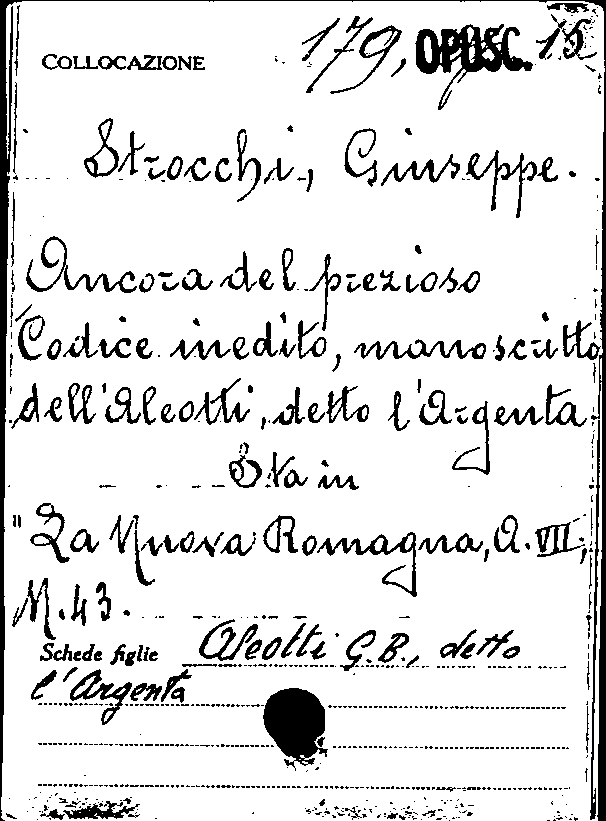 COLLOCAZIONE 179, OPUSC. 15
Strocchi, Giuseppe.
Ancora del prezioso
Codice inedito, manoscritto
dell'Aleotti, detto l'Argenta.
Sta in
"La Nuova Romagna, A. VII;
N. 43.
Schede figlie Aleotti G.B., detto
l'Argenta